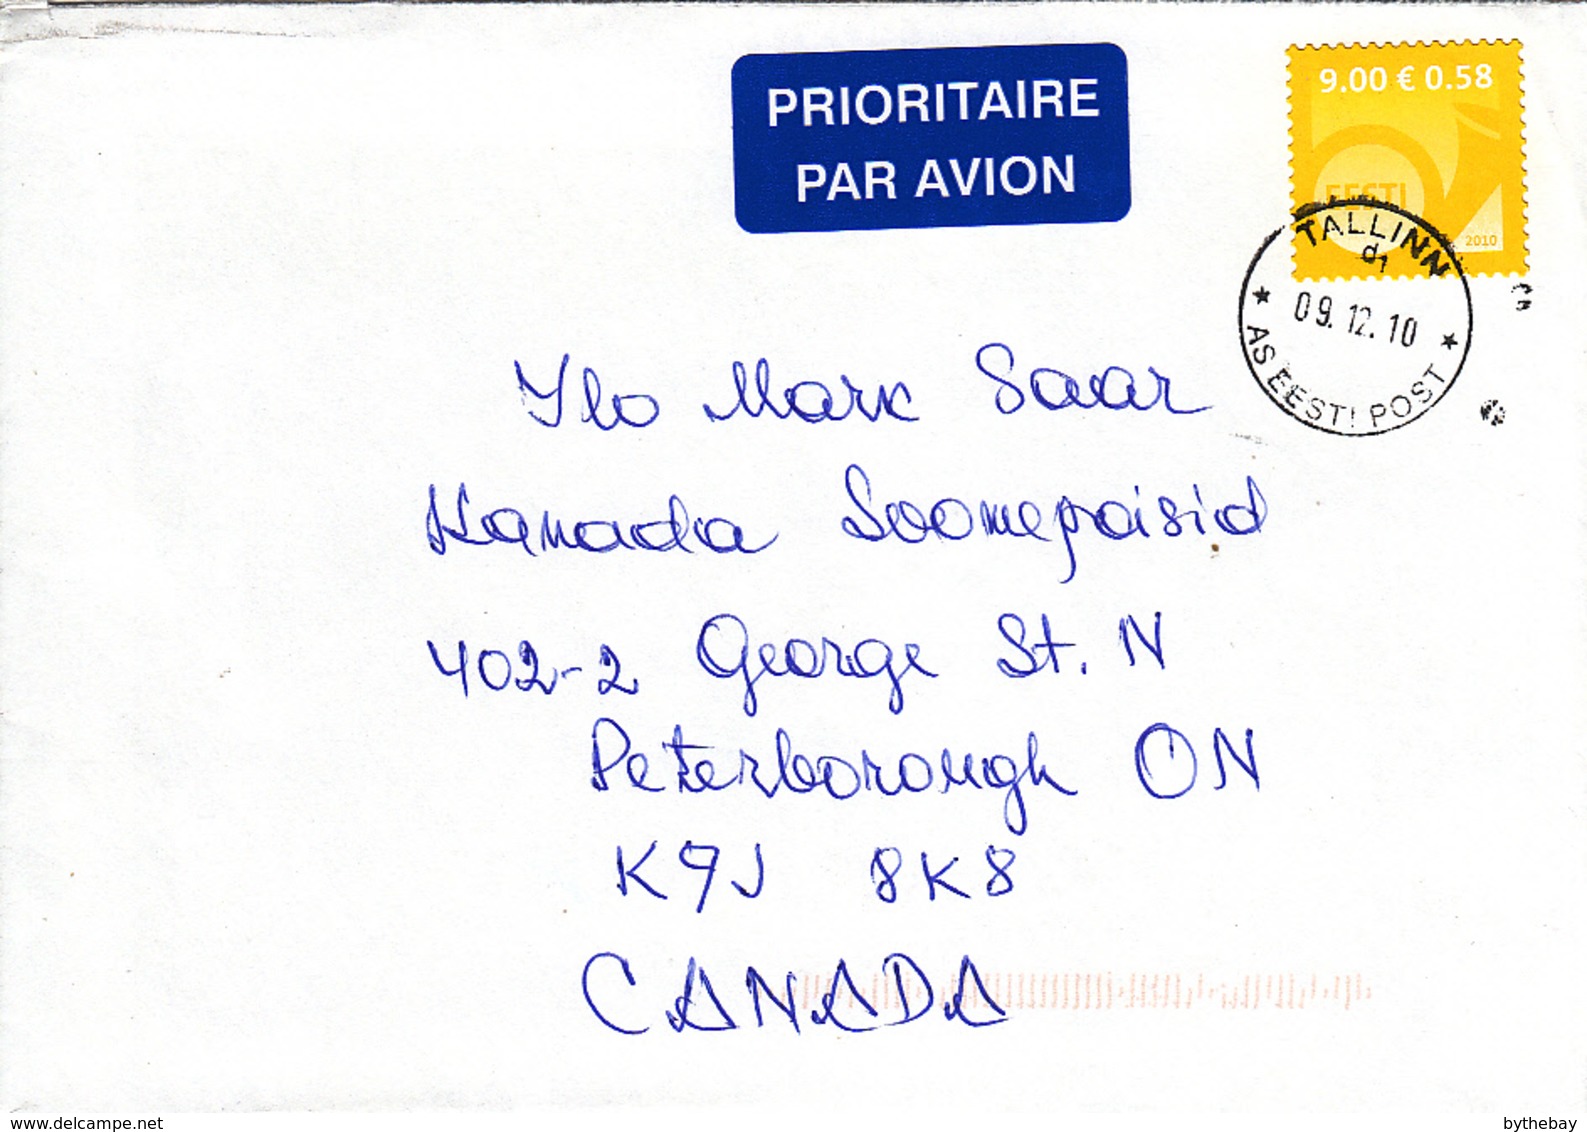 PRIORITAIRE
PAR AVION
9.00 € 0.58
EESTI
2010
TALLINN
d1
09.12.10
★ AS EESTI POST ★
Ylo Mark Saar
Kanada Soomepoisid
402-2 George St. N
Peterborough ON
K9J 8K8
CANADA
www.delcampe.net
bythebay